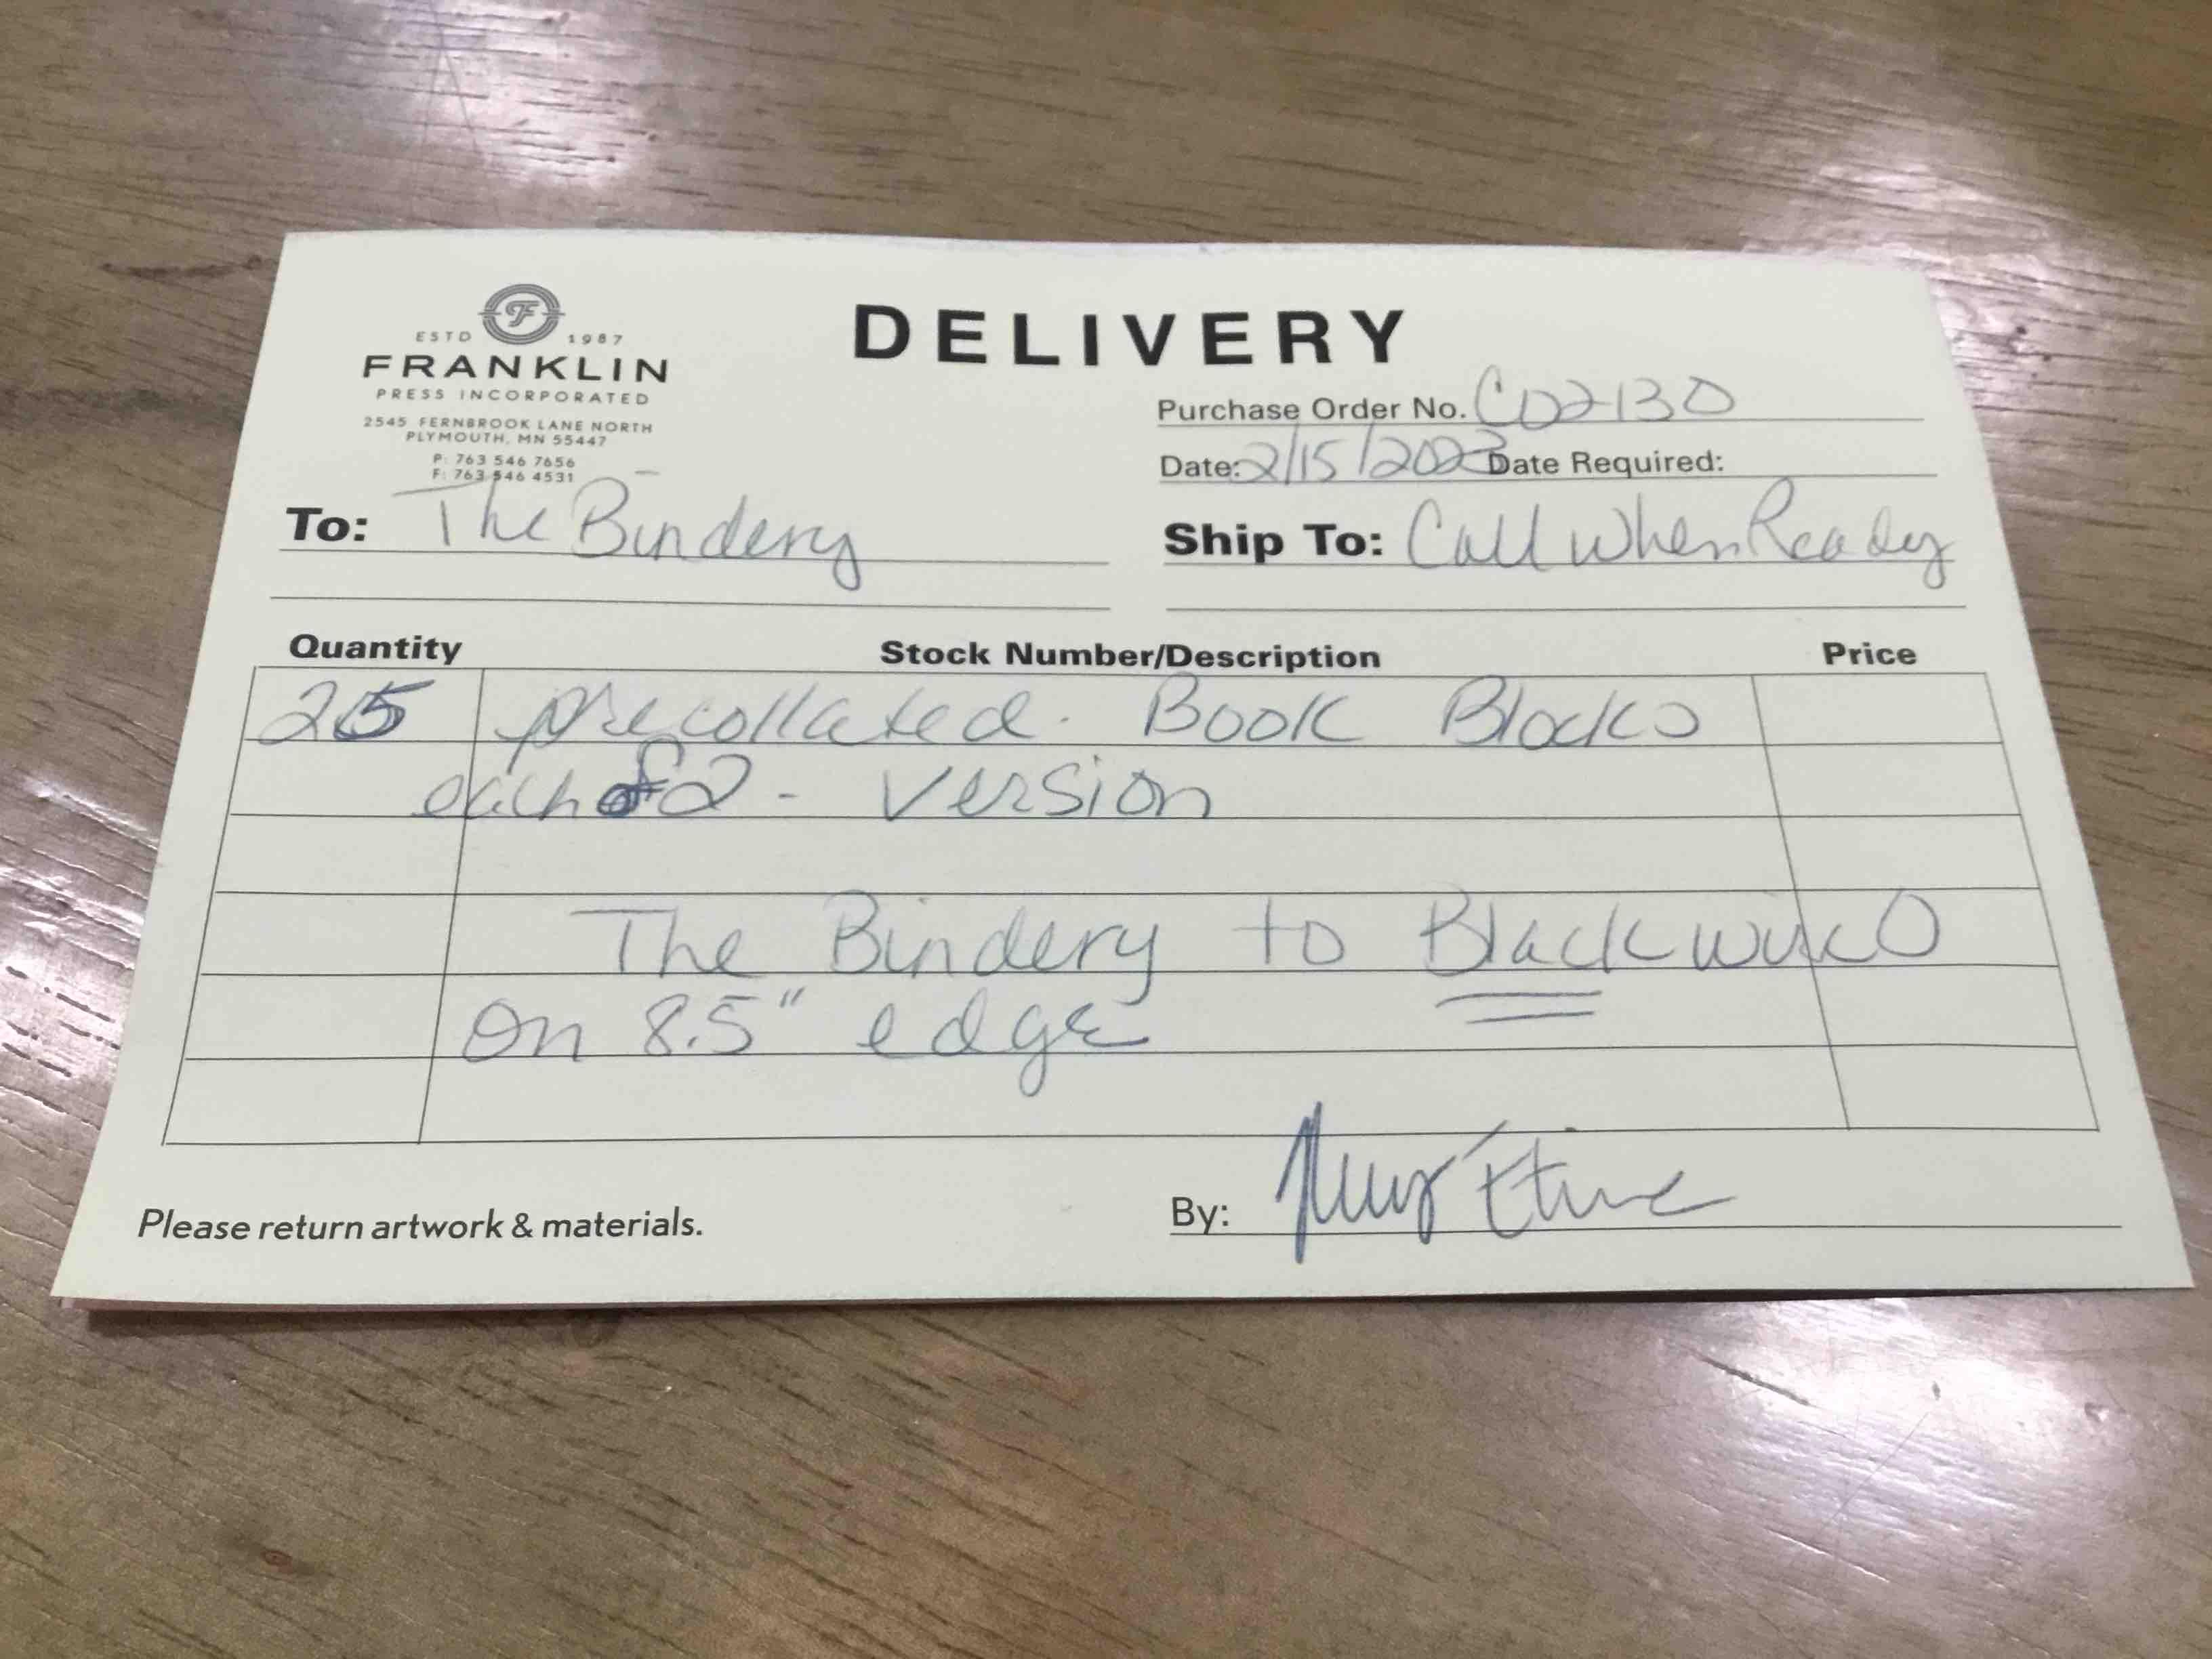 ESTD F 1987
FRANKLIN
PRESS INCORPORATED
2545 FERNBROOK LANE NORTH
PLYMOUTH, MN 55447
P: 763 546 7656
F: 763 546 4531
DELIVERY
Purchase Order No. CD2130
Date: 2/15/2023 Date Required:
To: The Bindery
Ship To: Call when Ready
Quantity Stock Number/Description Price
25 precollated. Book Blocks
each of 2 - version
The Bindery to Black wireO
on 8.5" edge
Please return artwork & materials.
By: